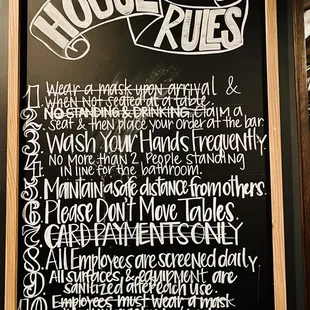 HOUSE
RULES
1. Wear a mask upon arrival &
when not seated at a table.
2. NO STANDING & DRINKING, claim a
seat & then place your order at the bar.
3. Wash Your Hands Frequently
4. No more than 2 People standing
in line for the bathroom.
5. Maintain a safe distance from others.
6. Please Don't Move Tables.
7. CARD PAYMENTS ONLY
8. All Employees are screened daily.
9. All surfaces & equipment are
sanitized after each use.
10. Employees must wear a mask